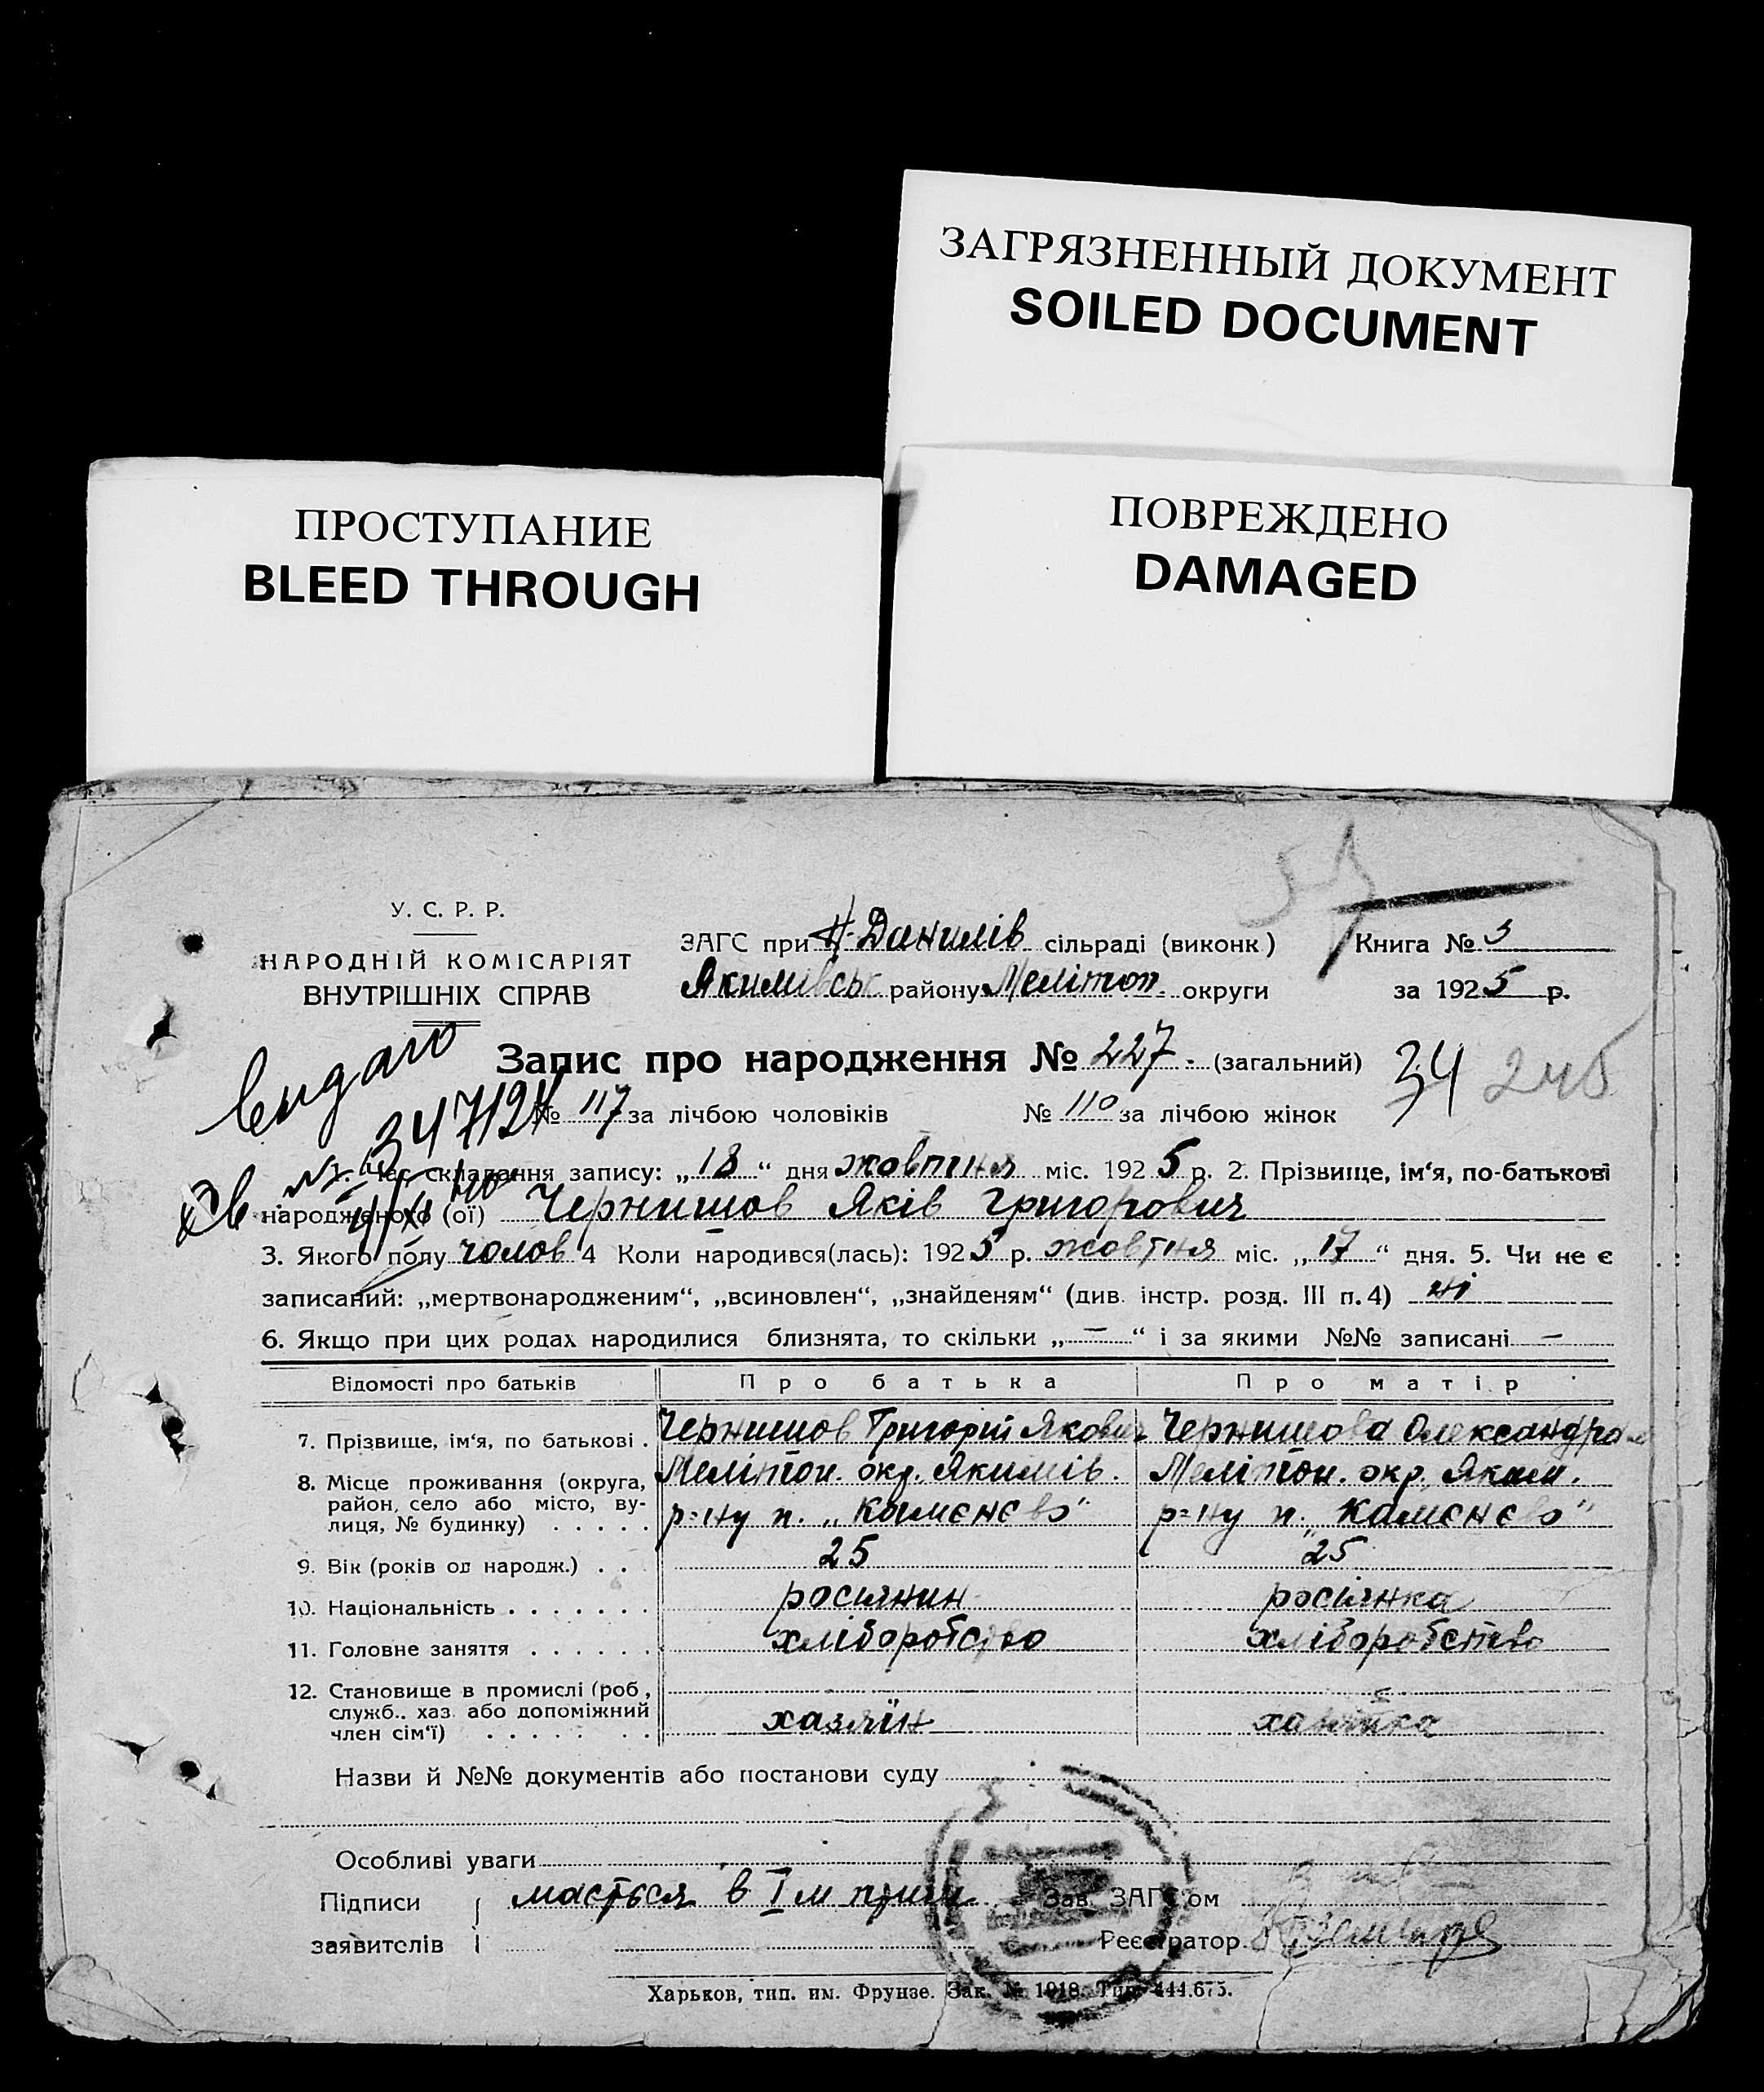 ЗАГРЯЗНЕННЫЙ ДОКУМЕНТ
SOILED DOCUMENT
ПРОСТУПАНИЕ
BLEED THROUGH
ПОВРЕЖДЕНО
DAMAGED
У. С. Р. Р.
НАРОДНІЙ КОМІСАРІЯТ
ВНУТРІШНІХ СПРАВ
ЗАГС при Н-Данилів сільраді (виконк)
Якимівськ району Мелітоп. округи
Книга № 3
за 1925 р.
Запис про народження № 227 - (загальний) 34 245
№ 117 за лічбою чоловіків № 110 за лічбою жінок
Видано
1. Час складання запису: „18“ дня жовтня міс. 1925 р. 2. Прізвище, ім‘я, по-батькові
народженого (ої) Чернишов Яків Григорович
3. Якого полу чолов 4 Коли народився(лась): 1925 р. жовтня міс. „17“ дня. 5. Чи не є
записаний: „мертвонародженим“, „всиновлен“, „знайденям“ (див. інстр. розд. III п. 4) ні
6. Якщо при цих родах народилися близнята, то скільки „—“ і за якими №№ записані —
Відомості про батьків Про батька Про матір
7. Прізвище, ім‘я, по батькові . Чернишов Григорій Якович Чернишова Олександра
8. Місце проживання (округа, район, село або місто, вулиця, № будинку) . . . . .
Мелітоп. окр. Якимів. Мелітоп. окр. Яким.
р=ну п. „Камєнєво“ р=ну п. „Камєнєво“
9. Вік (років од народж.) . . . 25 25
10. Національність . . . . . . . росіянин росіянка
11. Головне заняття . . . . . . хліборобство хліборобство
12. Становище в промислі (роб., служб., хаз. або допоміжний член сім‘ї) . . . . . . . хазяїн хазяйка
Назви й №№ документів або постанови суду
Особливі уваги
Підписи заявителів мається в І м прим Зав. ЗАГС‘ом
Реєстратор
Харьков, тип. им. Фрунзе. Зак. № 1918. Тир. 444.675.